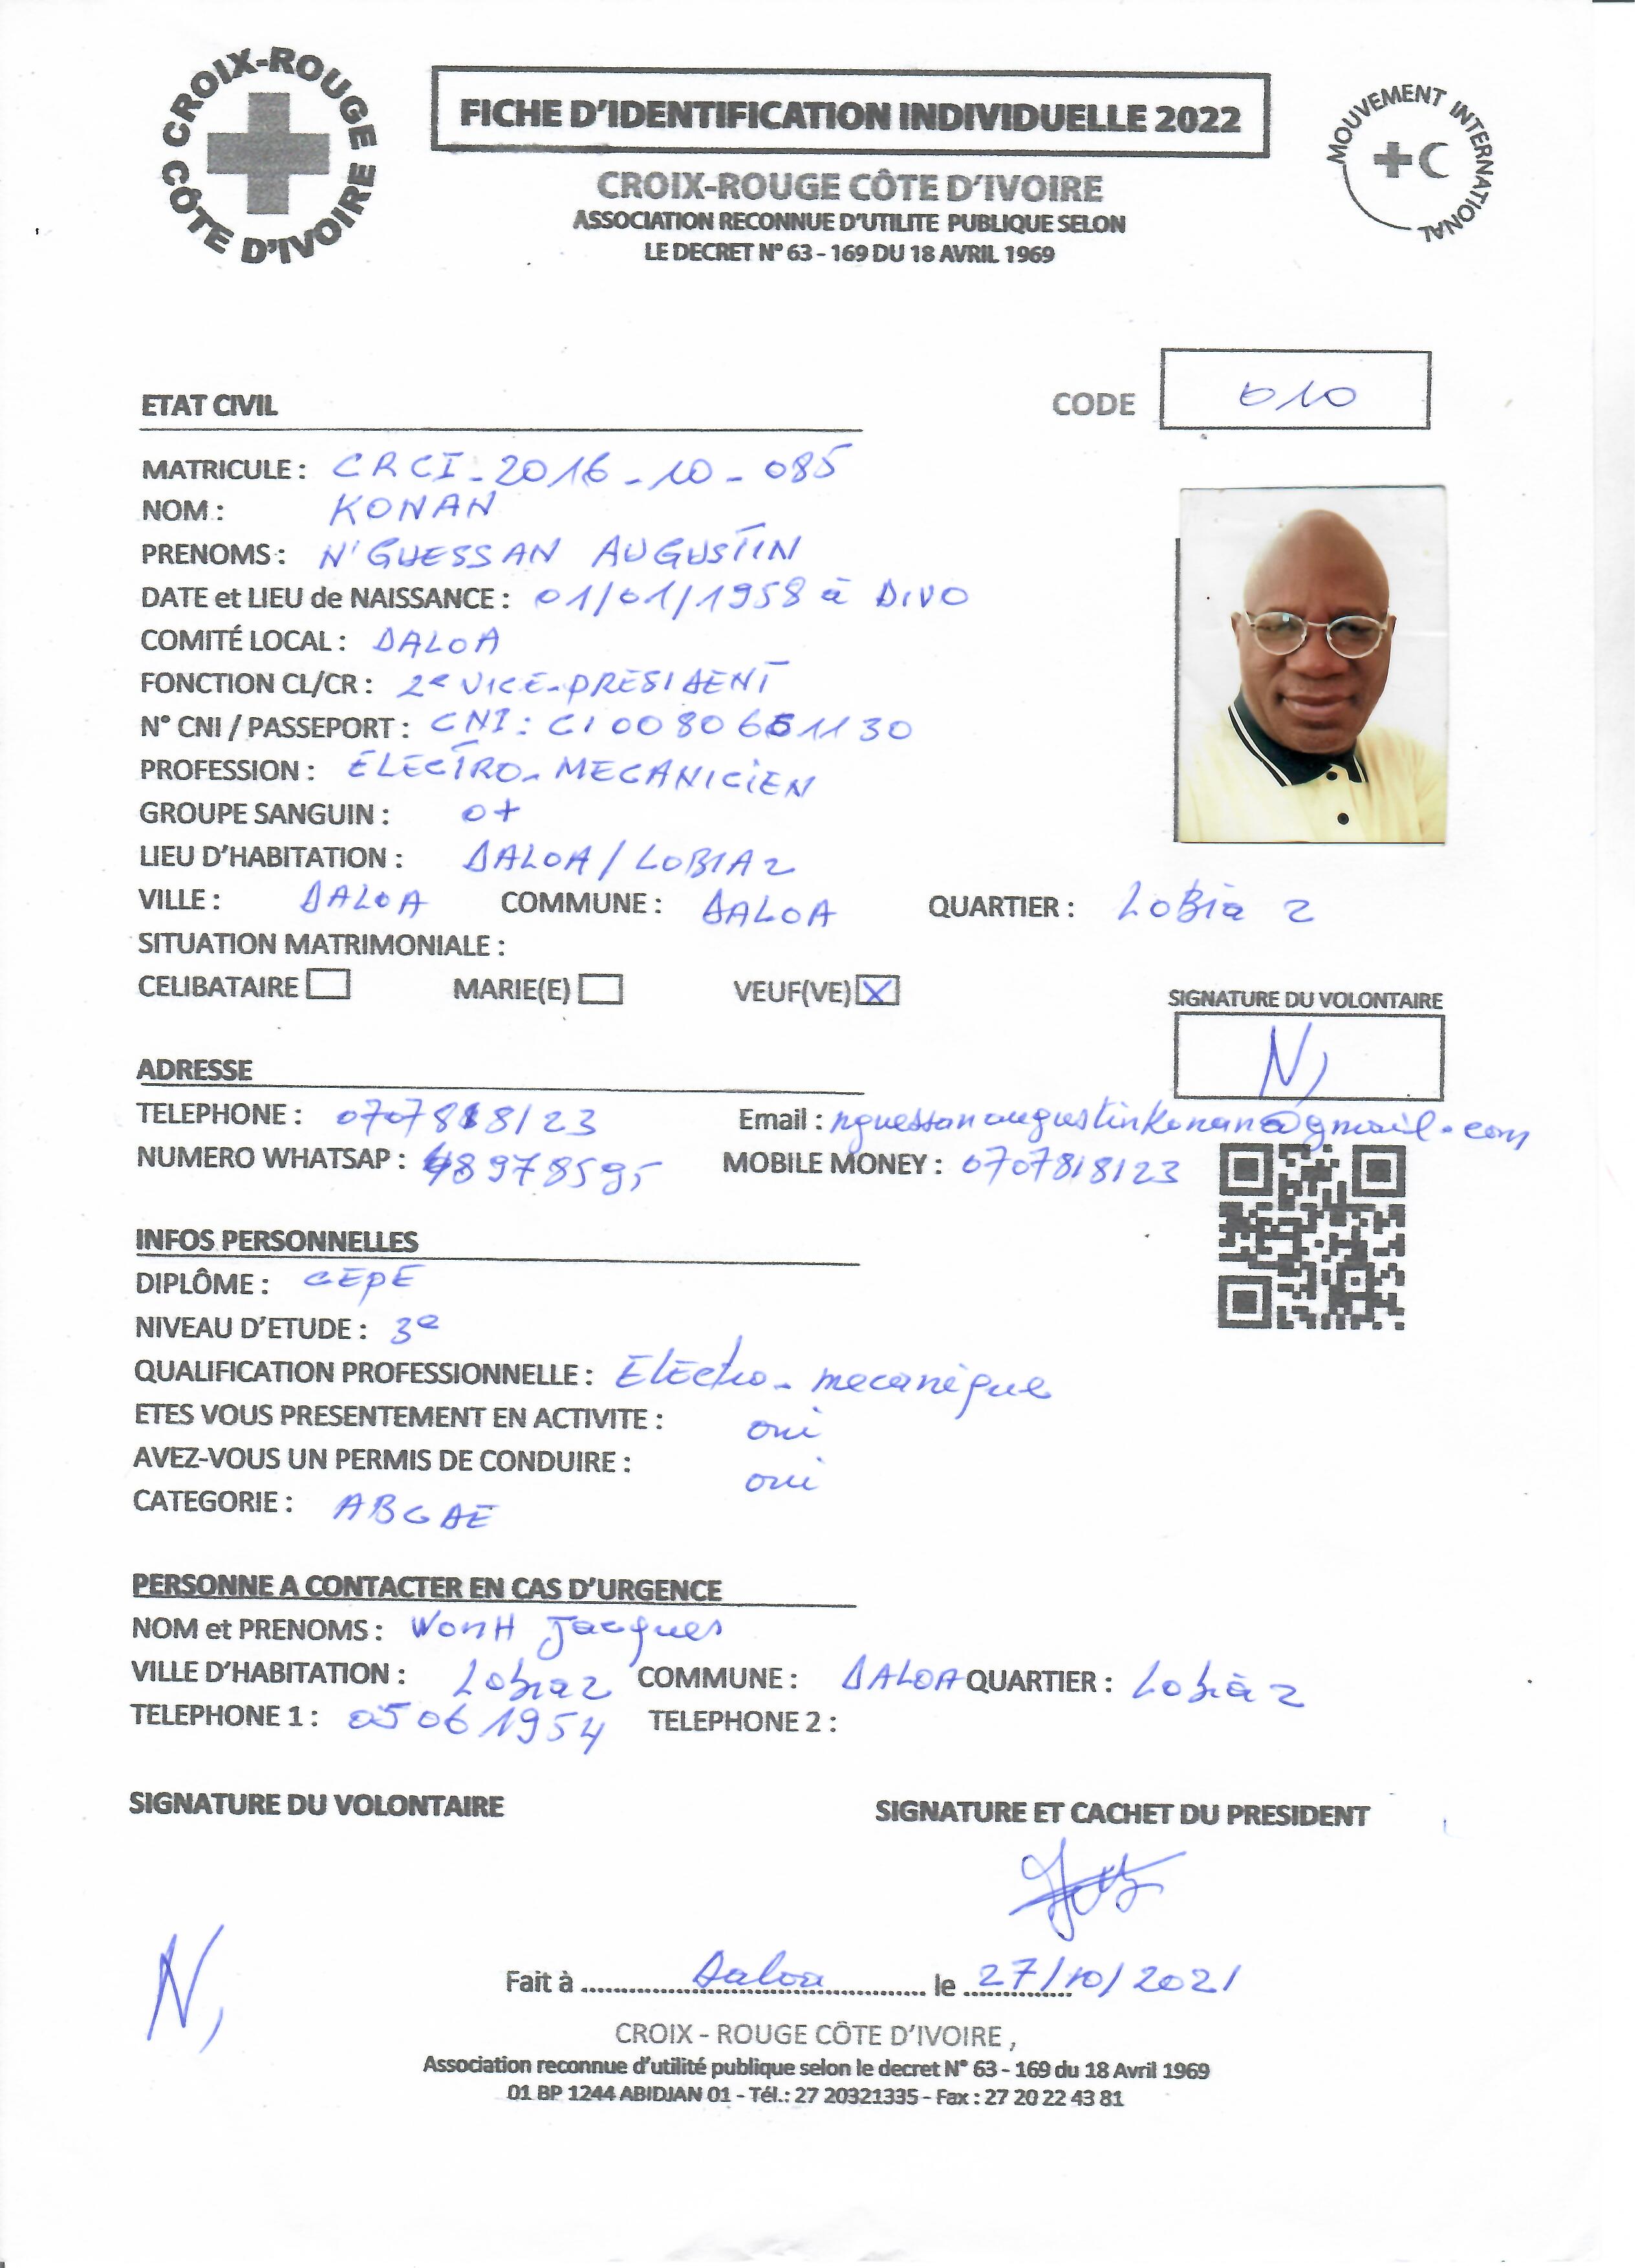 CROIX-ROUGE CÔTE D'IVOIRE
FICHE D'IDENTIFICATION INDIVIDUELLE 2022
MOUVEMENT INTERNATIONAL
CROIX-ROUGE CÔTE D'IVOIRE
ASSOCIATION RECONNUE D'UTILITE PUBLIQUE SELON
LE DECRET N° 63 - 169 DU 18 AVRIL 1969
ETAT CIVIL
CODE 010
MATRICULE : CRCI-2016-10-085
NOM : KONAN
PRENOMS : N'GUESSAN AUGUSTIN
DATE et LIEU de NAISSANCE : 01/01/1958 à DIVO
COMITÉ LOCAL : DALOA
FONCTION CL/CR : 2e VICE-PRESIDENT
N° CNI / PASSEPORT : CNI :
PROFESSION : ÉLECTRO-MECANICIEN
GROUPE SANGUIN : O+
LIEU D'HABITATION : DALOA / LOBIA 2
VILLE : DALOA COMMUNE : DALOA QUARTIER : LoBia 2
SITUATION MATRIMONIALE :
CELIBATAIRE MARIE(E) VEUF(VE) X
SIGNATURE DU VOLONTAIRE
ADRESSE
TELEPHONE : 0707818123 Email : nguessanaugustinkonan@gmail.com
NUMERO WHATSAP : MOBILE MONEY : 0707818123
INFOS PERSONNELLES
DIPLÔME : CEPE
NIVEAU D'ETUDE : 3e
QUALIFICATION PROFESSIONNELLE : Electro-mecanique
ETES VOUS PRESENTEMENT EN ACTIVITE : oui
AVEZ-VOUS UN PERMIS DE CONDUIRE : oui
CATEGORIE : ABCDE
PERSONNE A CONTACTER EN CAS D'URGENCE
NOM et PRENOMS : Jacques
VILLE D'HABITATION : Lobia 2 COMMUNE : DALOA QUARTIER : Lobia 2
TELEPHONE 1 : 05061954 TELEPHONE 2 :
SIGNATURE DU VOLONTAIRE SIGNATURE ET CACHET DU PRESIDENT
Fait à Daloa le 27/10/2021
CROIX - ROUGE CÔTE D'IVOIRE ,
Association reconnue d'utilité publique selon le decret N° 63 - 169 du 18 Avril 1969
01 BP 1244 ABIDJAN 01 - Tél.: 27 20321335 - Fax : 27 20 22 43 81